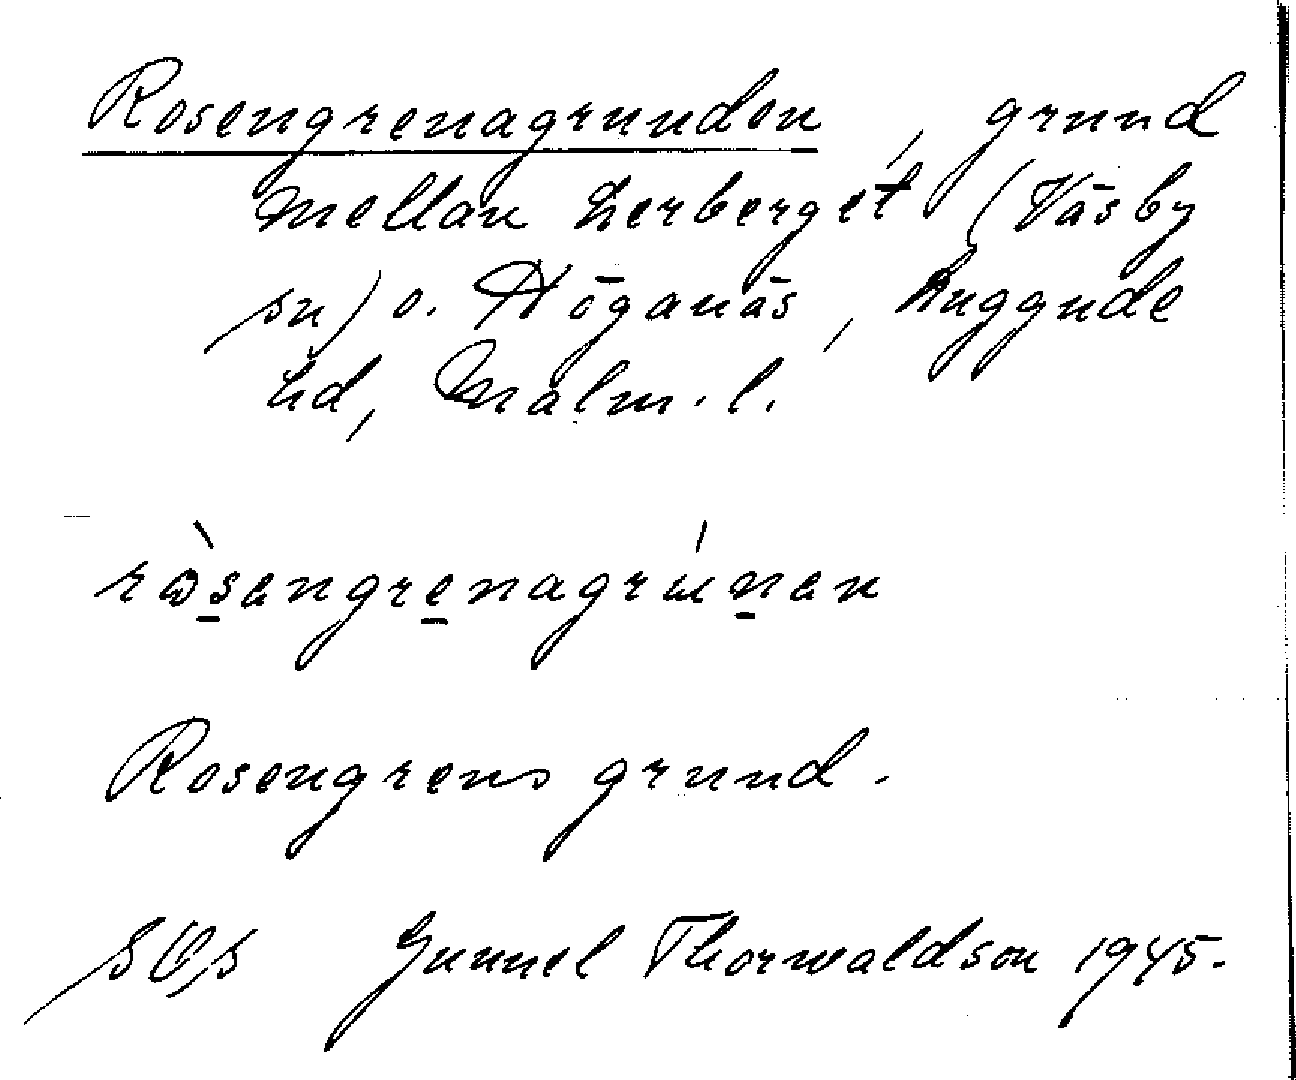 Rosengrenagrunden, grund
mellan Lerberget (Väsby
sn) o. Höganäs, Luggude
hd, Malm. l.
ròsengrenagrúnen
Rosengrens grund.
Gunnel Thorwaldson 1945.